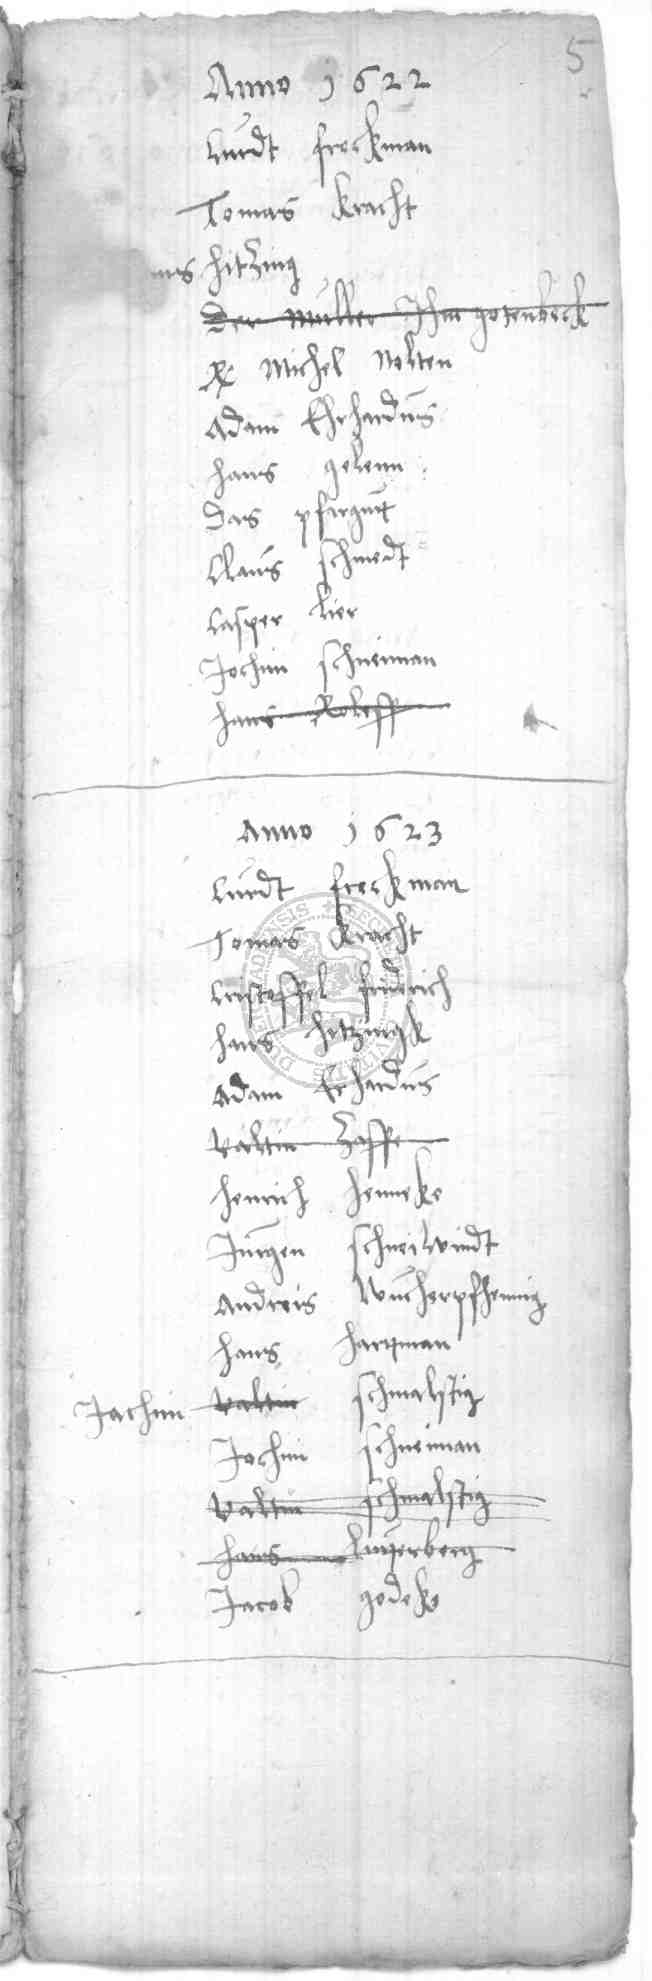 5
Anno 1622
Curdt freckman
Tomas Kracht
hitzing
Der Müller Ihm gotenbeck
Michel Nolten
Adam Ehrhardus
hans gelenn
Das pfargut
Claus schmedt
Casper lier
Jochim schneiman
hans Roleff
Anno 1623
Curdt freckman
Tomas Kracht
Cristoffel friderich
hans hitzingk
Adam Erhardus
Valtin Zaffe
Henrich Henneke
Jurgen schneiwindt
Andreis Wucherpfhennig
hans hartman
Jachim Valtin schmalstig
Jochim schneiman
Valtin schmalstig
hans
Jacob godeke